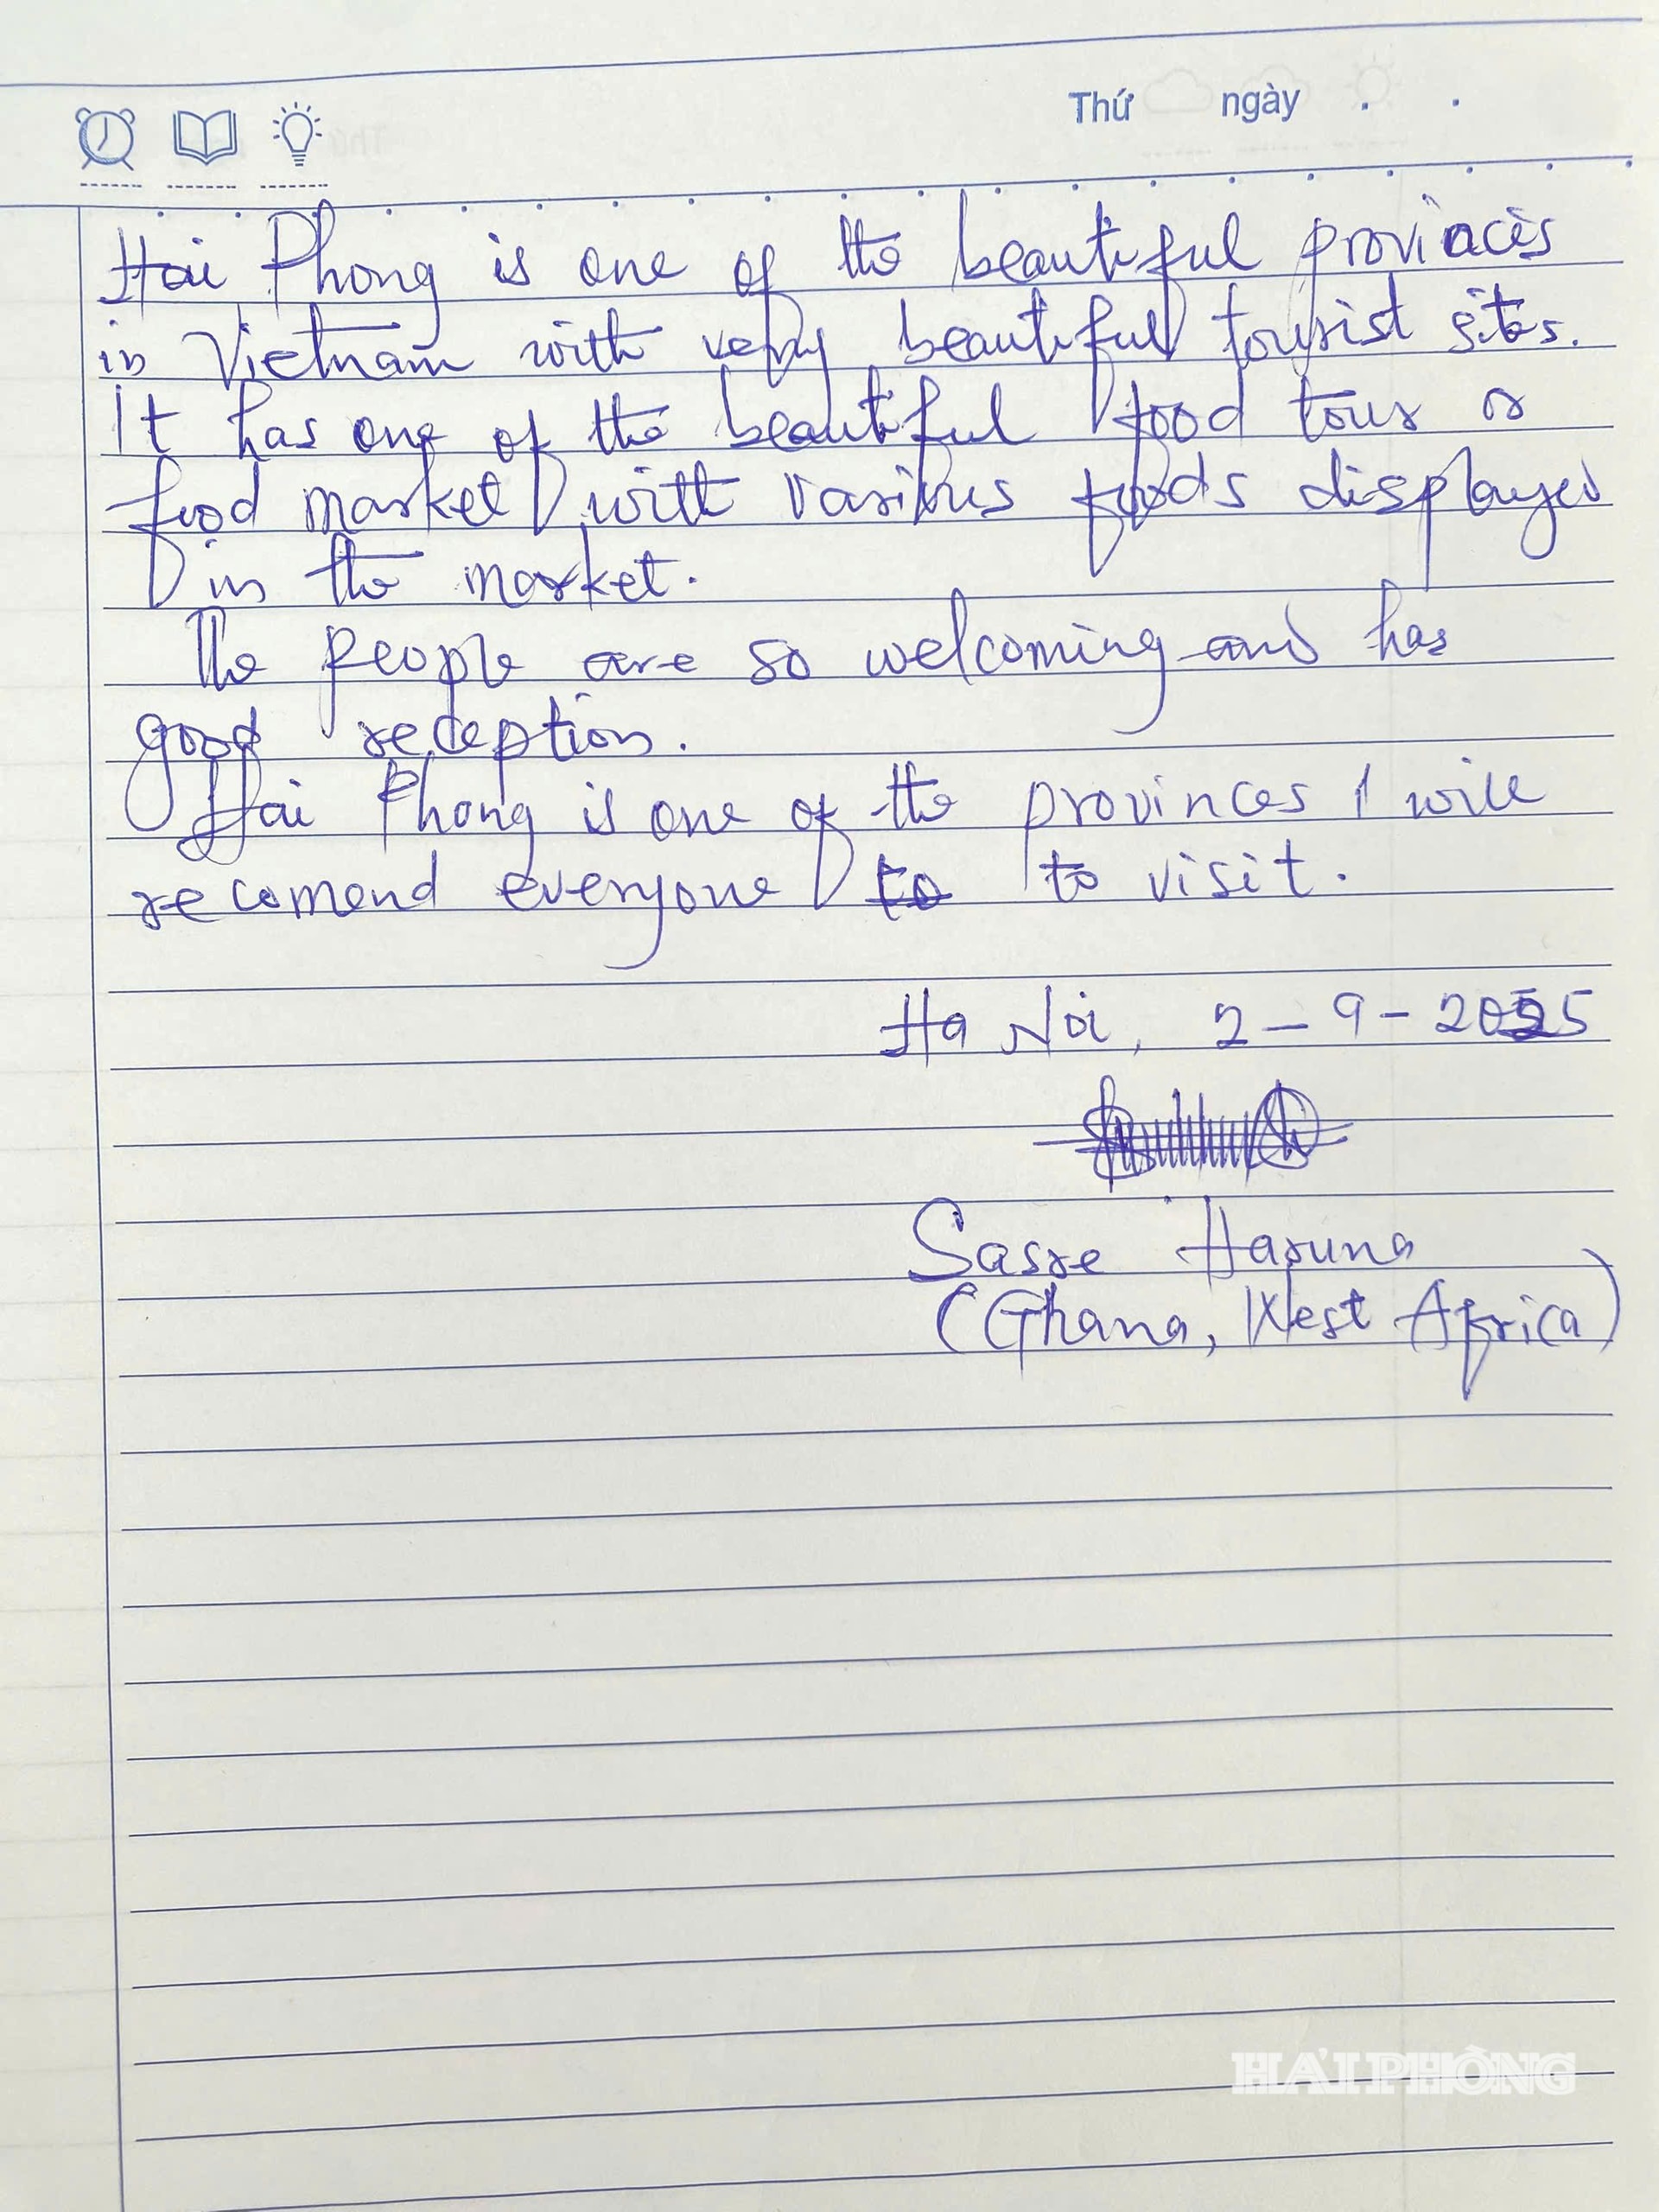 Thứ ngày . .
Hai Phong is one of the beautiful provinces
in Vietnam with very beautiful tourist sites.
It has one of the beautiful food tour or
food market with various foods displayed
in the market.
The people are so welcoming and has
good reception.
Hai Phong is one of the provinces I will
recomend everyone to to visit.
Ha Nôi, 2-9-2025
Sasre Haruna
(Ghana, West Africa)
HẢI PHÒNG